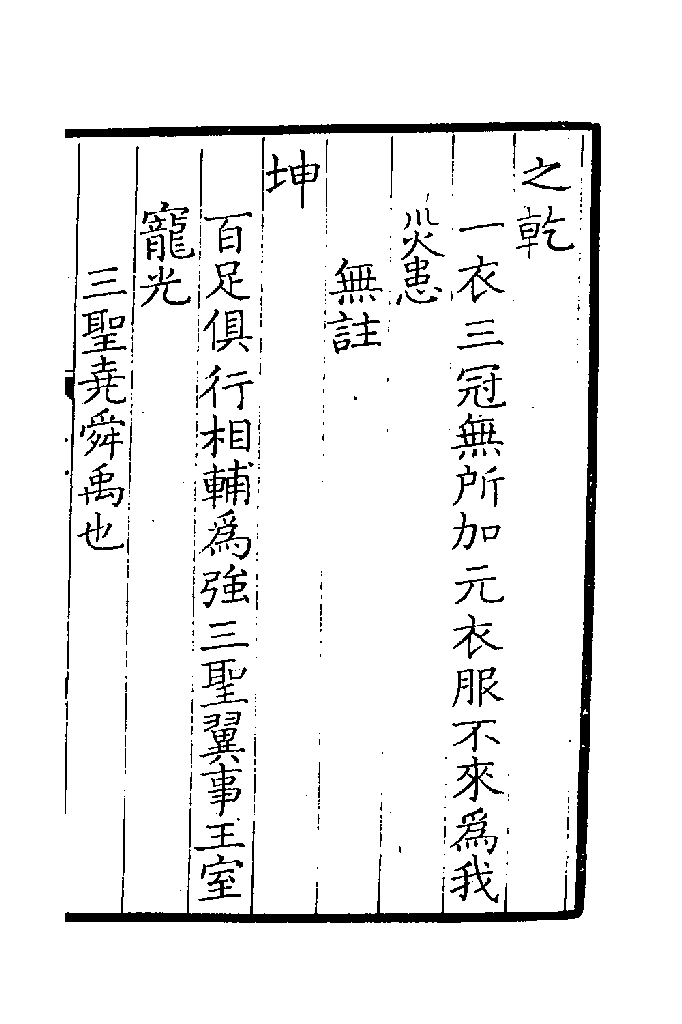 之乾
一衣三冠無所加元衣服不來爲我
災患
無註
坤
百足俱行相輔爲強三聖翼事王室
寵光
三聖堯舜禹也